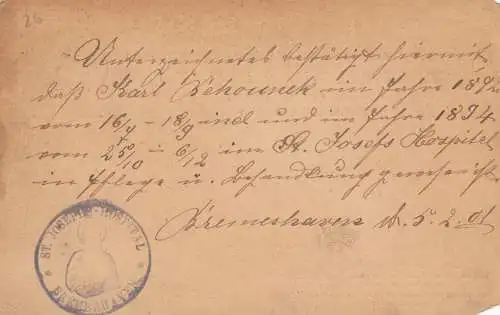 26
Unterzeichnetes bestätigt hiermit
daß Karl im Jahre 189
vom 16/4 - 18/9 incl und im Jahre 1894
vom 25/10 - 6/12 im St. Josefs Hospital
in Pflege u. Behandlung gewesen ist
Bremerhaven d. 5. 2. 01
ST. JOSEPHS-HOSPITAL
BREMERHAVEN